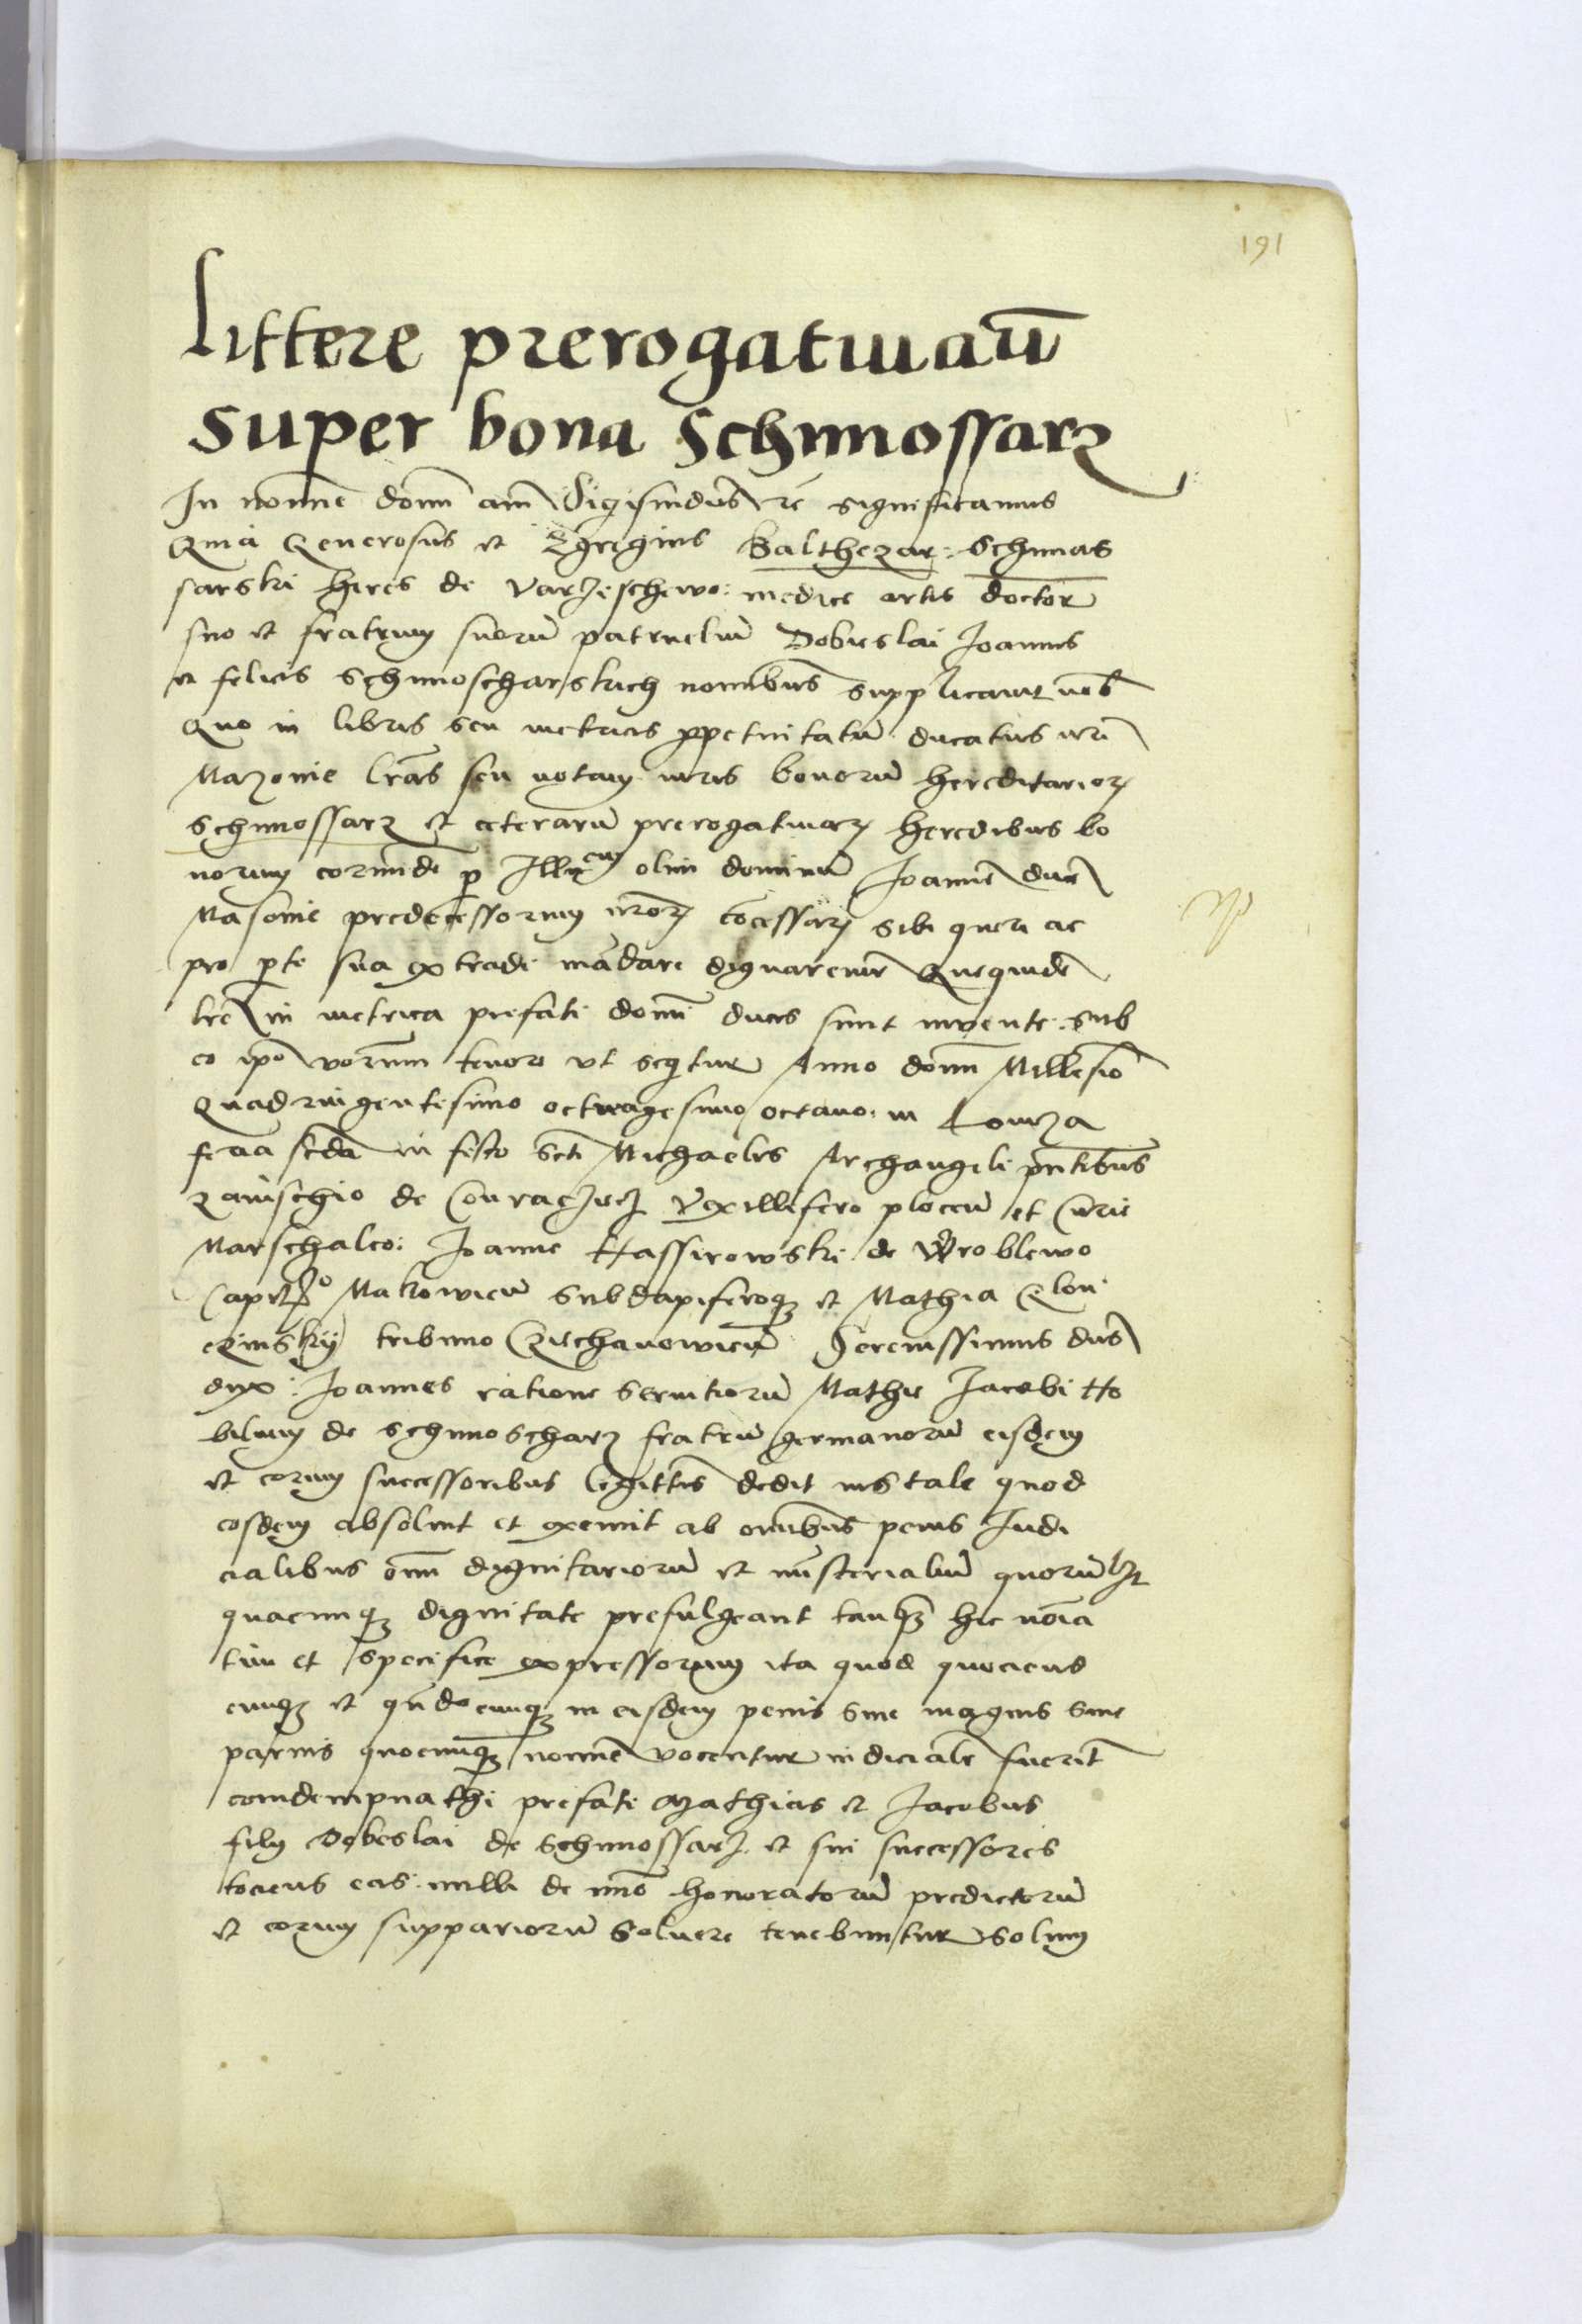 191
littere prerogatiuaꝝ̄
super bona Schmossarz
In nomīe domī am̄ Sigismūdus rc̄ significamus
Quia Generosus et Egregius Balthezar: Schmas
sarski heres de Varzeschewo: medice artis doctor
suo et fratrum suorū patrueliū Dobieslai Joannis
et felicis Schmoscharskich nomībus supplicauit nob̄
Quo in libris seu metricis ꝑpetuitatū ducatus nr̄i
Mazouie lr̄as seu notam iuris bonorū hereditarioꝝ
Schmossarz et ceterarū prerogatiuaꝝ heredibus bo
norum eorundē ꝑ Illꝫ em olim dominū Joannē ducē
Masouie predecessorum nr̄oꝝ cōcessaꝝ sibi queri ac
pro ꝑte sua extradi mādare dignaremr̄ Quequidē
lr̄e in metrica prefati domī ducis sunt inuente. sub
eo ip̄o vorum tenore vt seqͥtur Anno domī Millesīo
Quadringentesimo octuagesimo octauo. in Lomza
feria sc̄da in festo Sctī Michaelis Archangeli pn̄tibus
zauischio de Conraczicz Vexillifero plocēn et Curie
Marschalco: Joanne Nassirowski de Wroblewo
Capitꝫº Makowien̄ Subdapiferoqꝫ et Mathia Glou
czinskij tribuno Cziechanowien̄ Serenissimus dn̄s
dux: Joannes ratione seruitiorū Mathie Jacobi No
bilium de Schmoscharz fratrū germanorū eisdem
et eorum successoribus legittīs dedit ius tale quod
eosdem absoluit et exemit ab omībus penis Iudi
cialibus om̄i dignitariorū et mīsterialiū quorūlꝫt
quacunqꝫ dignitate prefulgeant tanqꝫ hic noīa
tim et specifice expressorum ita quod quociens
cunqꝫ et qn̄documqꝫ in eisdem penis siue magnis siue
paruis quocunqꝫ nomīe vocentur iudicialr̄ fuerīt
comdempnathi prefati Mathias et Jacobus
filij Dobeslai de Schmossarz et sui successores
tociens eas nulli de nuō honoratorū predictorū
et eorum suppariorū Soluere tenebuntur solum